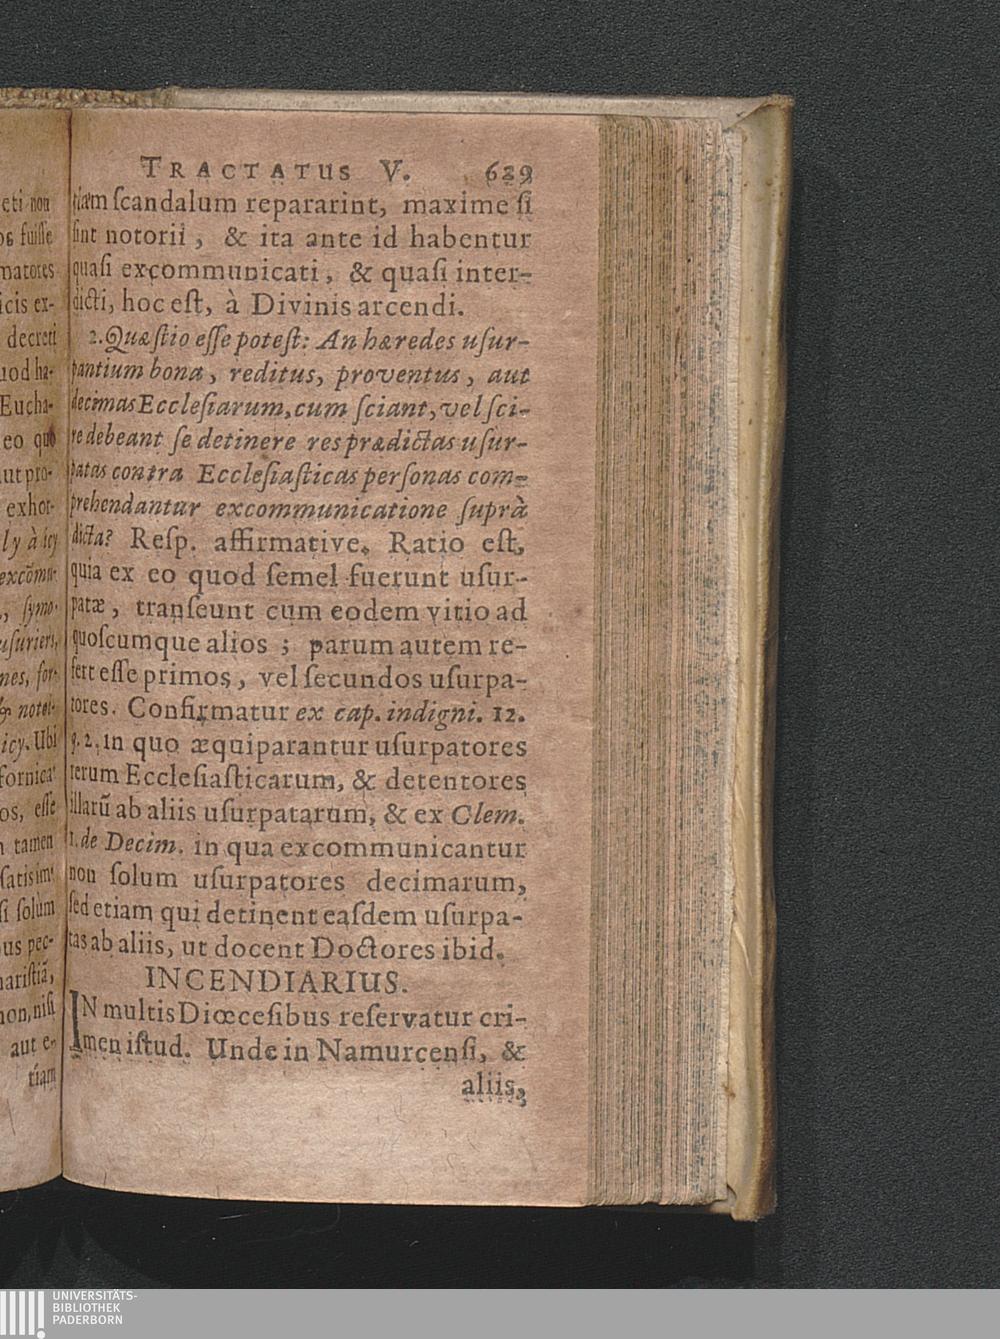 TRACTATUS V. 639
tiam ſcandalum repararint, maxime ſi
ſint notorii, & ita ante id habentur
quaſi excommunicati, & quaſi inter-
dicti, hoc eſt, à Divinis arcendi.
2. Quæſtio eſſe poteſt: An hæredes uſur-
pantium bona, reditus, proventus, aut
decimas Eccleſiarum, cum ſciant, vel ſci-
re debeant ſe detinere res prædictas uſur-
patas contra Eccleſiaſticas perſonas com-
prehendantur excommunicatione ſuprà
dicta? Reſp. affirmative. Ratio eſt,
quia ex eo quod ſemel fuerunt uſur-
patæ, tranſeunt cum eodem vitio ad
quoſcumque alios; parum autem re-
fert eſſe primos, vel ſecundos uſurpa-
tores. Confirmatur ex cap. indigni. 12.
q. 2. in quo æquiparantur uſurpatores
rerum Eccleſiaſticarum, & detentores
illarū ab aliis uſurpatarum, & ex Clem.
1. de Decim. in qua excommunicantur
non ſolum uſurpatores decimarum,
ſed etiam qui detinent eaſdem uſurpa-
tas ab aliis, ut docent Doctores ibid.
INCENDIARIUS.
IN multis Diœceſibus reſervatur cri-
men iſtud. Unde in Namurcenſi, &
aliis,
eti non
os fuiſſe
matores
icis ex-
decreti
uod ha-
Eucha-
eo quo
aut pro-
exhor-
ly à icy
excōmu-
, ſymo-
uſuriers,
nes, for-
& notoi-
icy. Ubi
fornica-
os, eſſe
n tamen
ſatis im-
ſi ſolùm
us pec-
hariſtiā,
non, niſi
aut e-
tiam
UNIVERSITÄTS-
BIBLIOTHEK
PADERBORN